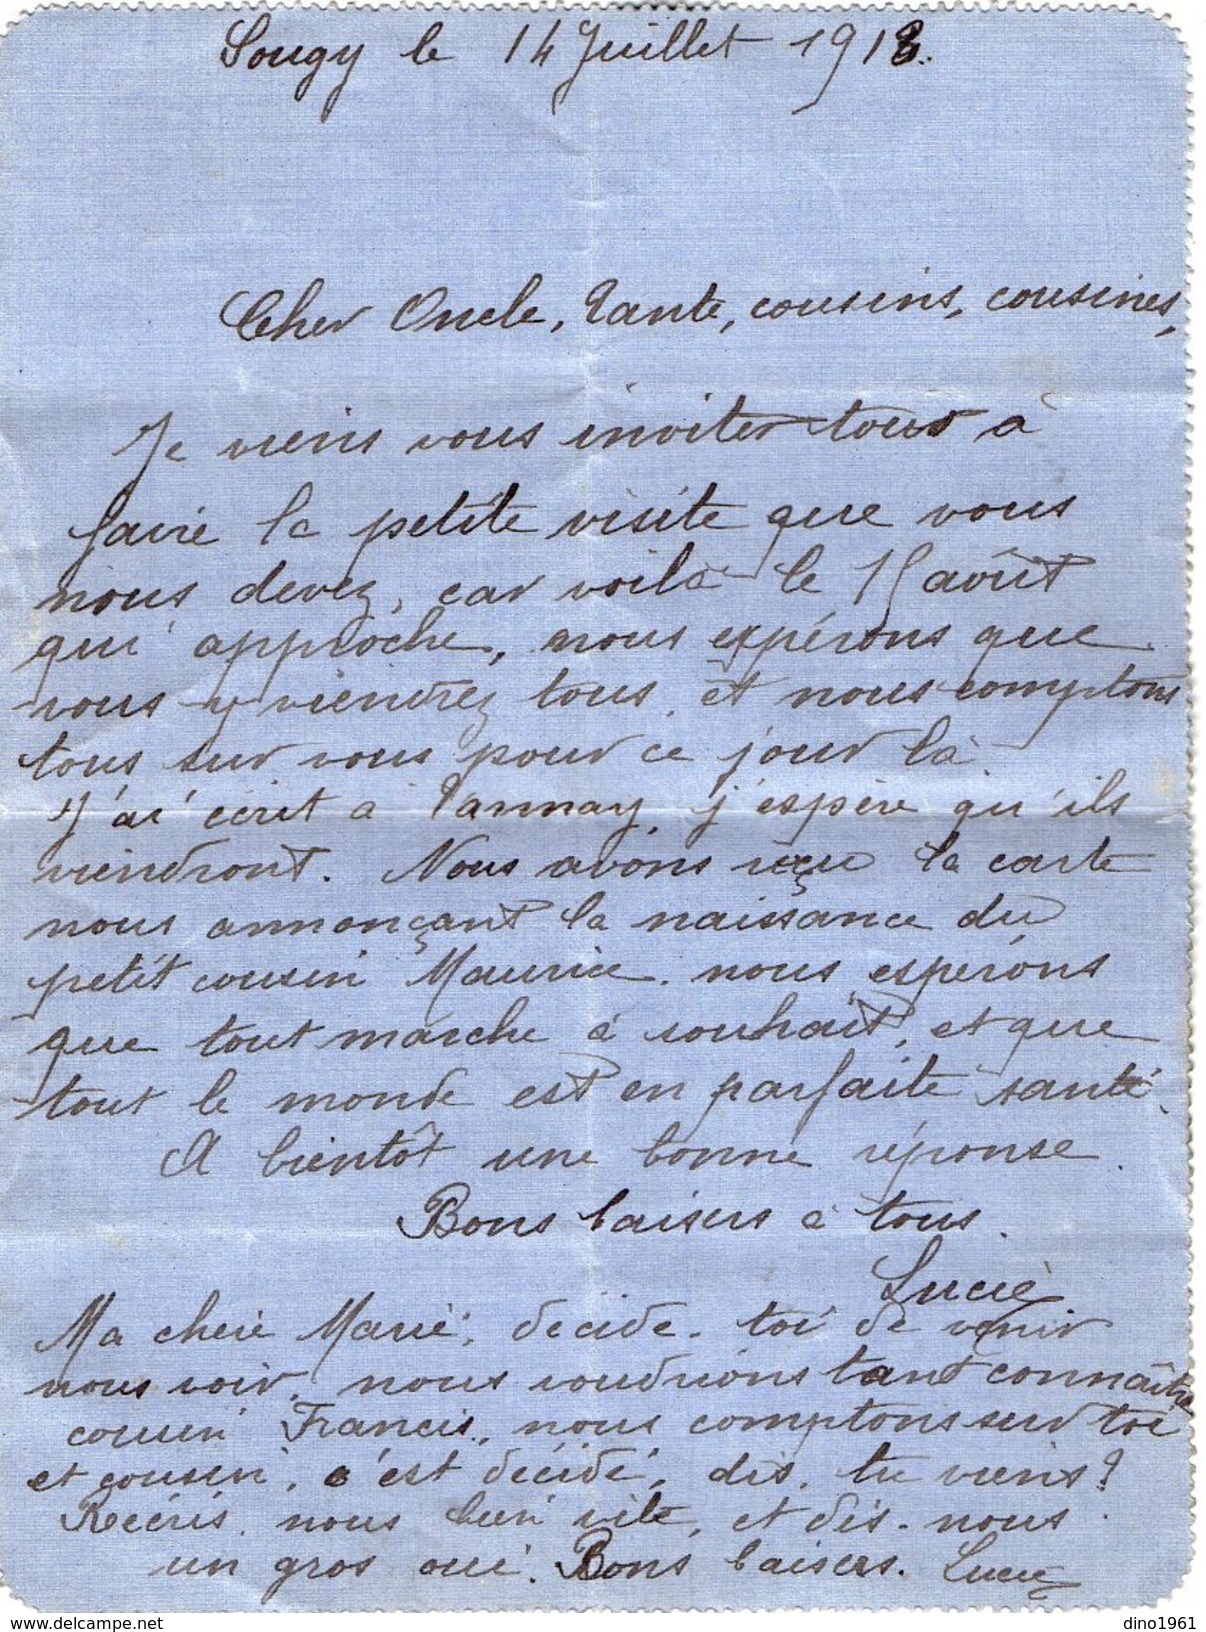 Sougy le 14 Juillet 1918.
Cher Oncle, Tante, cousins, cousines,
Je viens vous inviter tous à
faire la petite visite que vous
nous devez, car voilà le 15 août
qui approche, nous espérons que
vous y viendrez tous, et nous comptons
tous sur vous pour ce jour là
J'ai écrit à Tannay, j'espère qu'ils
viendront. Nous avons reçu la carte
nous annonçant la naissance du
petit cousin Maurice. nous espérons
que tout marche à souhait, et que
tout le monde est en parfaite santé.
A bientôt une bonne réponse.
Bons baisers à tous.
Lucie
Ma chère Marie, décide-toi de venir
nous voir, nous voudrions tant connaître
cousin Francis, nous comptons sur toi
et cousin, c'est décidé, dis, tu viens?
Récris-nous bien vite, et dis-nous
un gros oui. Bons baisers. Lucie
dino1961